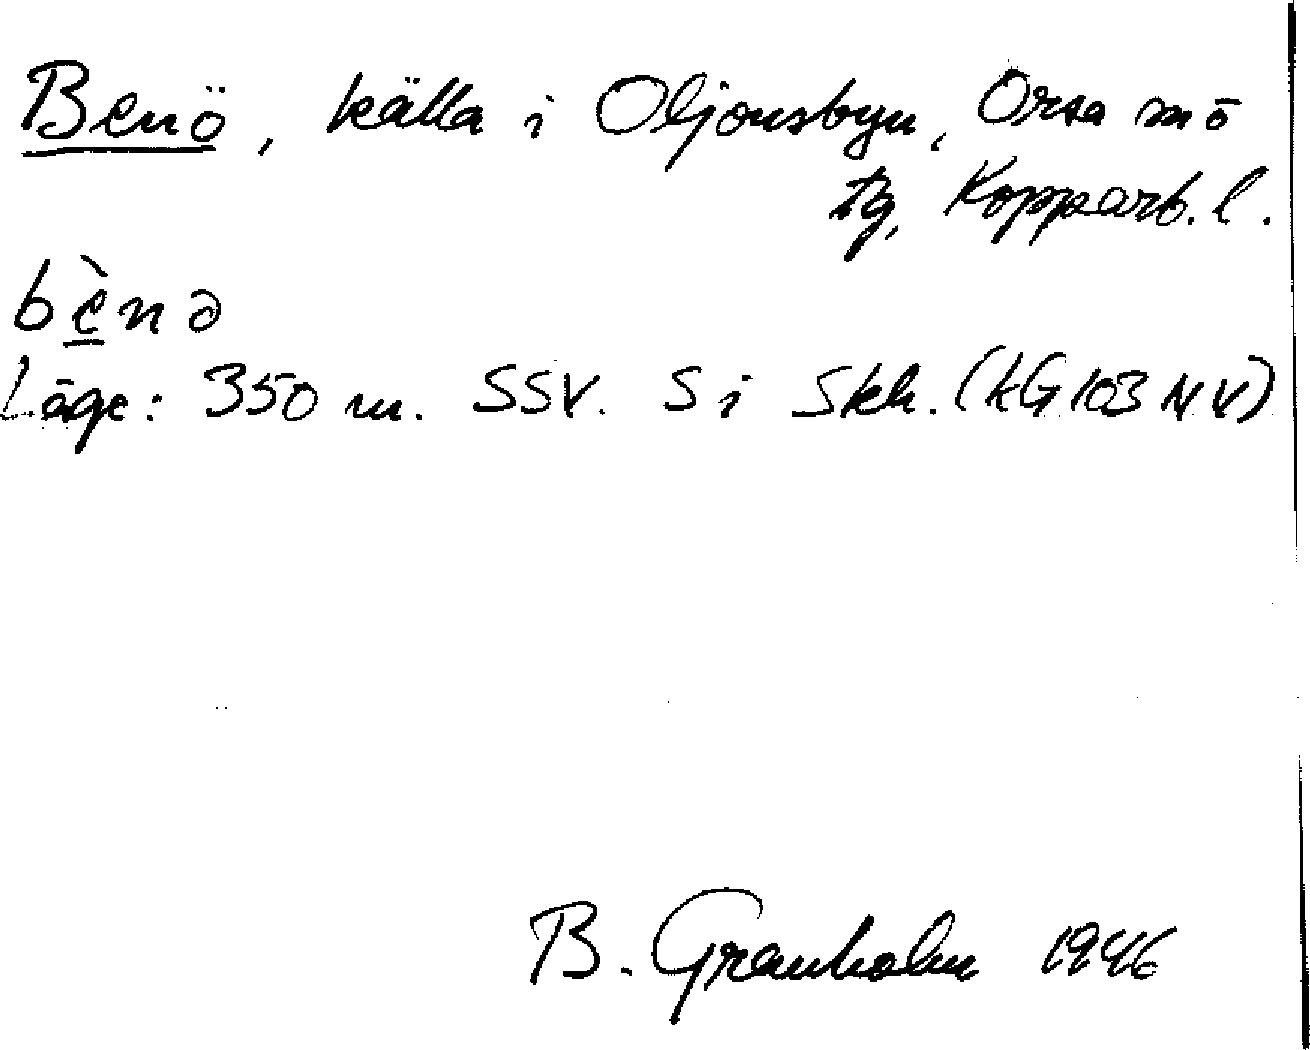 Benö, källa i Oljonsbyn, Orsa sn o
tg, Kopparb. l.
bènə
Läge: 350 m. SSV. S i Skh. (kG 103 NV)
B. Granholm 1946